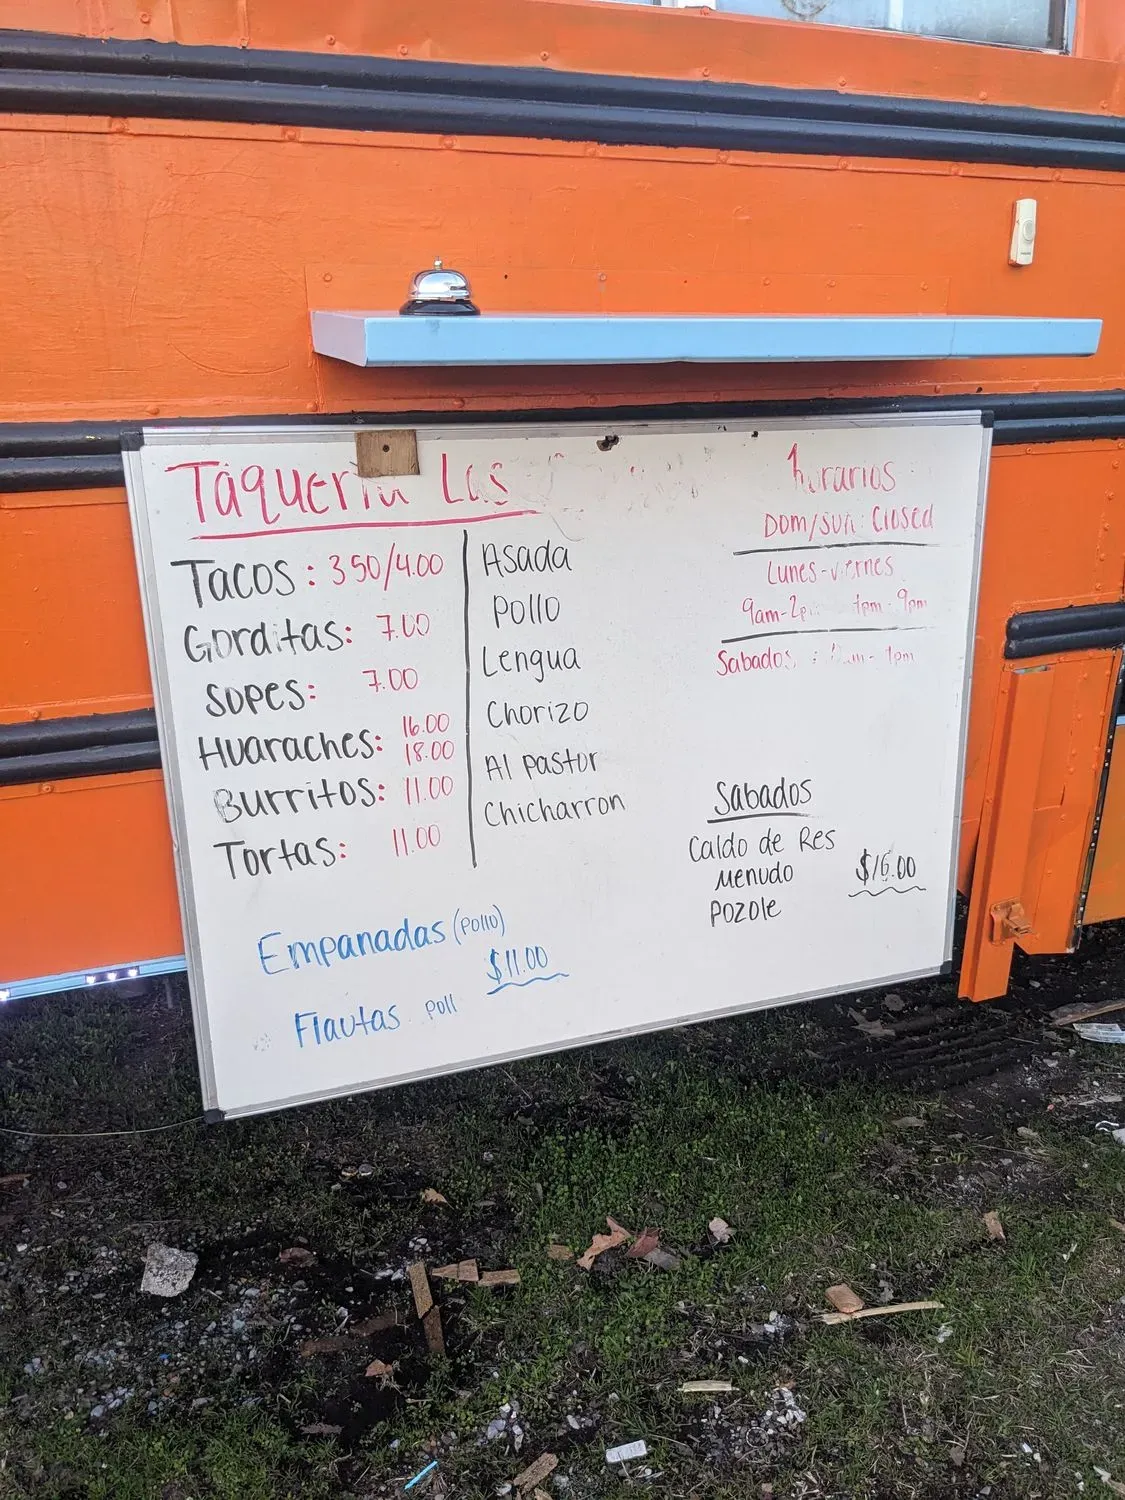 Taqueria Las
Tacos: 350/4.00
Gorditas: 7.00
Sopes: 7.00
Huaraches: 16.00
18.00
Burritos: 11.00
Tortas: 11.00
Asada
Pollo
Lengua
Chorizo
Al pastor
Chicharron
Empanadas (Pollo)
$11.00
Flautas Poll
horarios
Dom/sun: Closed
Lunes-viernes
9am-2p - 9pm
Sabados : - 1pm
Sabados
Caldo de Res
Menudo
Pozole
$16.00